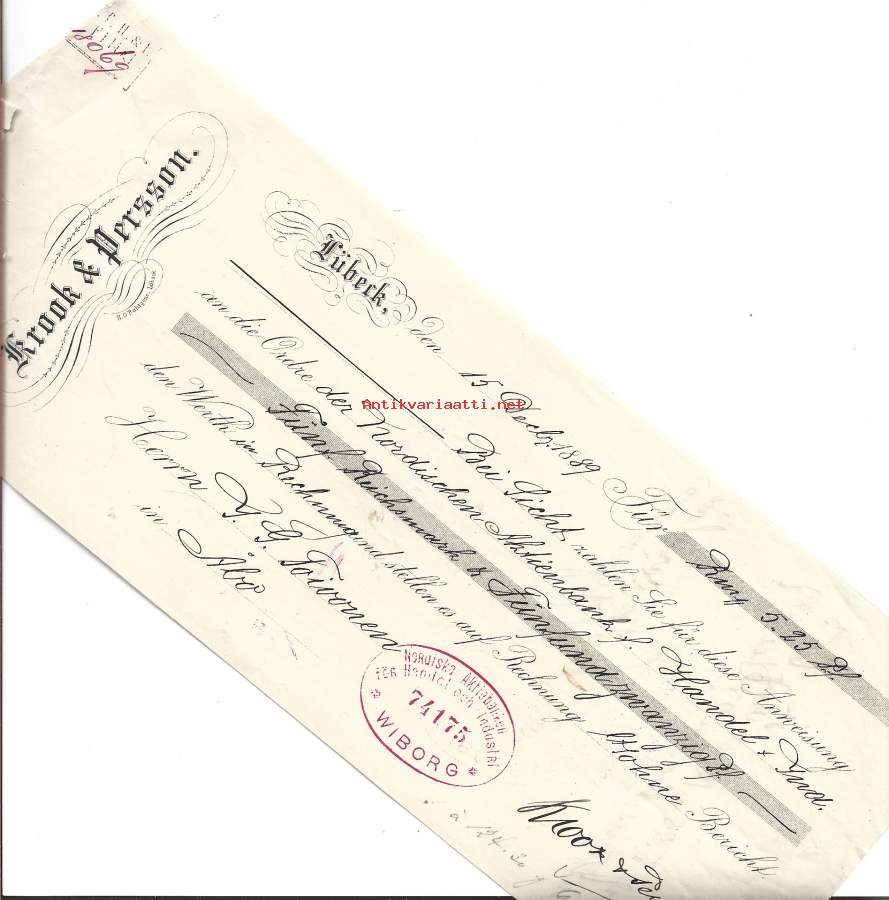 18069
Krook & Persson.
Lübeck, den 15 Decbr. 1889 Für Rmg 5.25 Pf.
Bei Sicht zahlen Sie für diese Anweisung
an die Ordre der Nordischen Aktienbank f. Handel & Ind.
Fünf Reichsmark & Fünfundzwanzig Pf.
den Werth in Rechnung und stellen es auf Rechnung ohne Bericht.
Herrn J. G. Toivonen
in Åbo
Krook &
NORDISKA AKTIEBANKEN
FÖR Handel och Industri
74175
WIBORG
Antikvariaatti.net